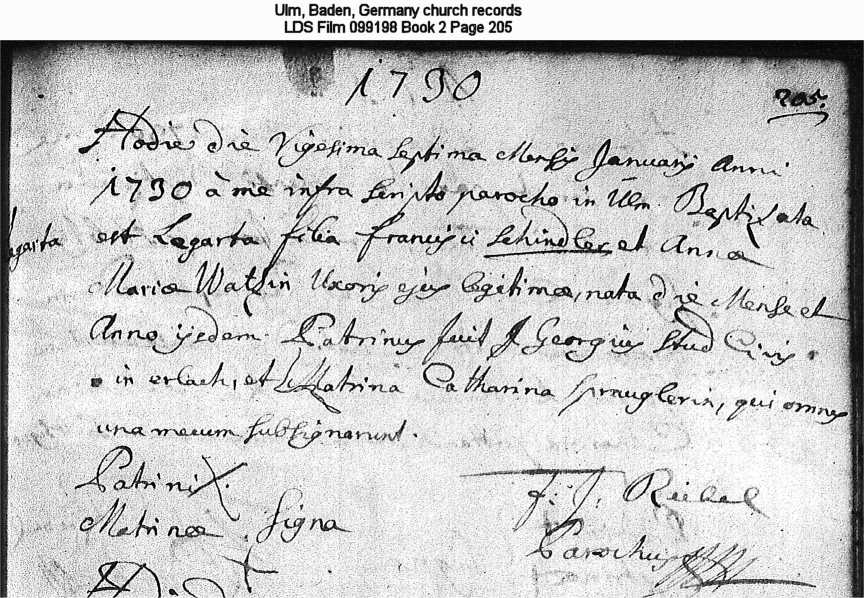 Ulm, Baden, Germany church records
LDS Film 099198 Book 2 Page 205
1730
205.
Hodie die Vigesima septima Mensis Januarii anni
1730 à me infra scripto parocho in Ulm Baptizata
Legarta
est Legarta filia Francisci Schindler et Annæ
Mariæ Watzin Uxoris ejus legitimæ, nata die Mense et
Anno ijsdem. Patrinus fuit J. Georgius Stud Civis
in erlach, et Matrina Catharina Spranglerin, qui omnes
una mecum subsignarunt.
Patrini X.
Matrinæ Signa
F. J. Riebel
Parochus